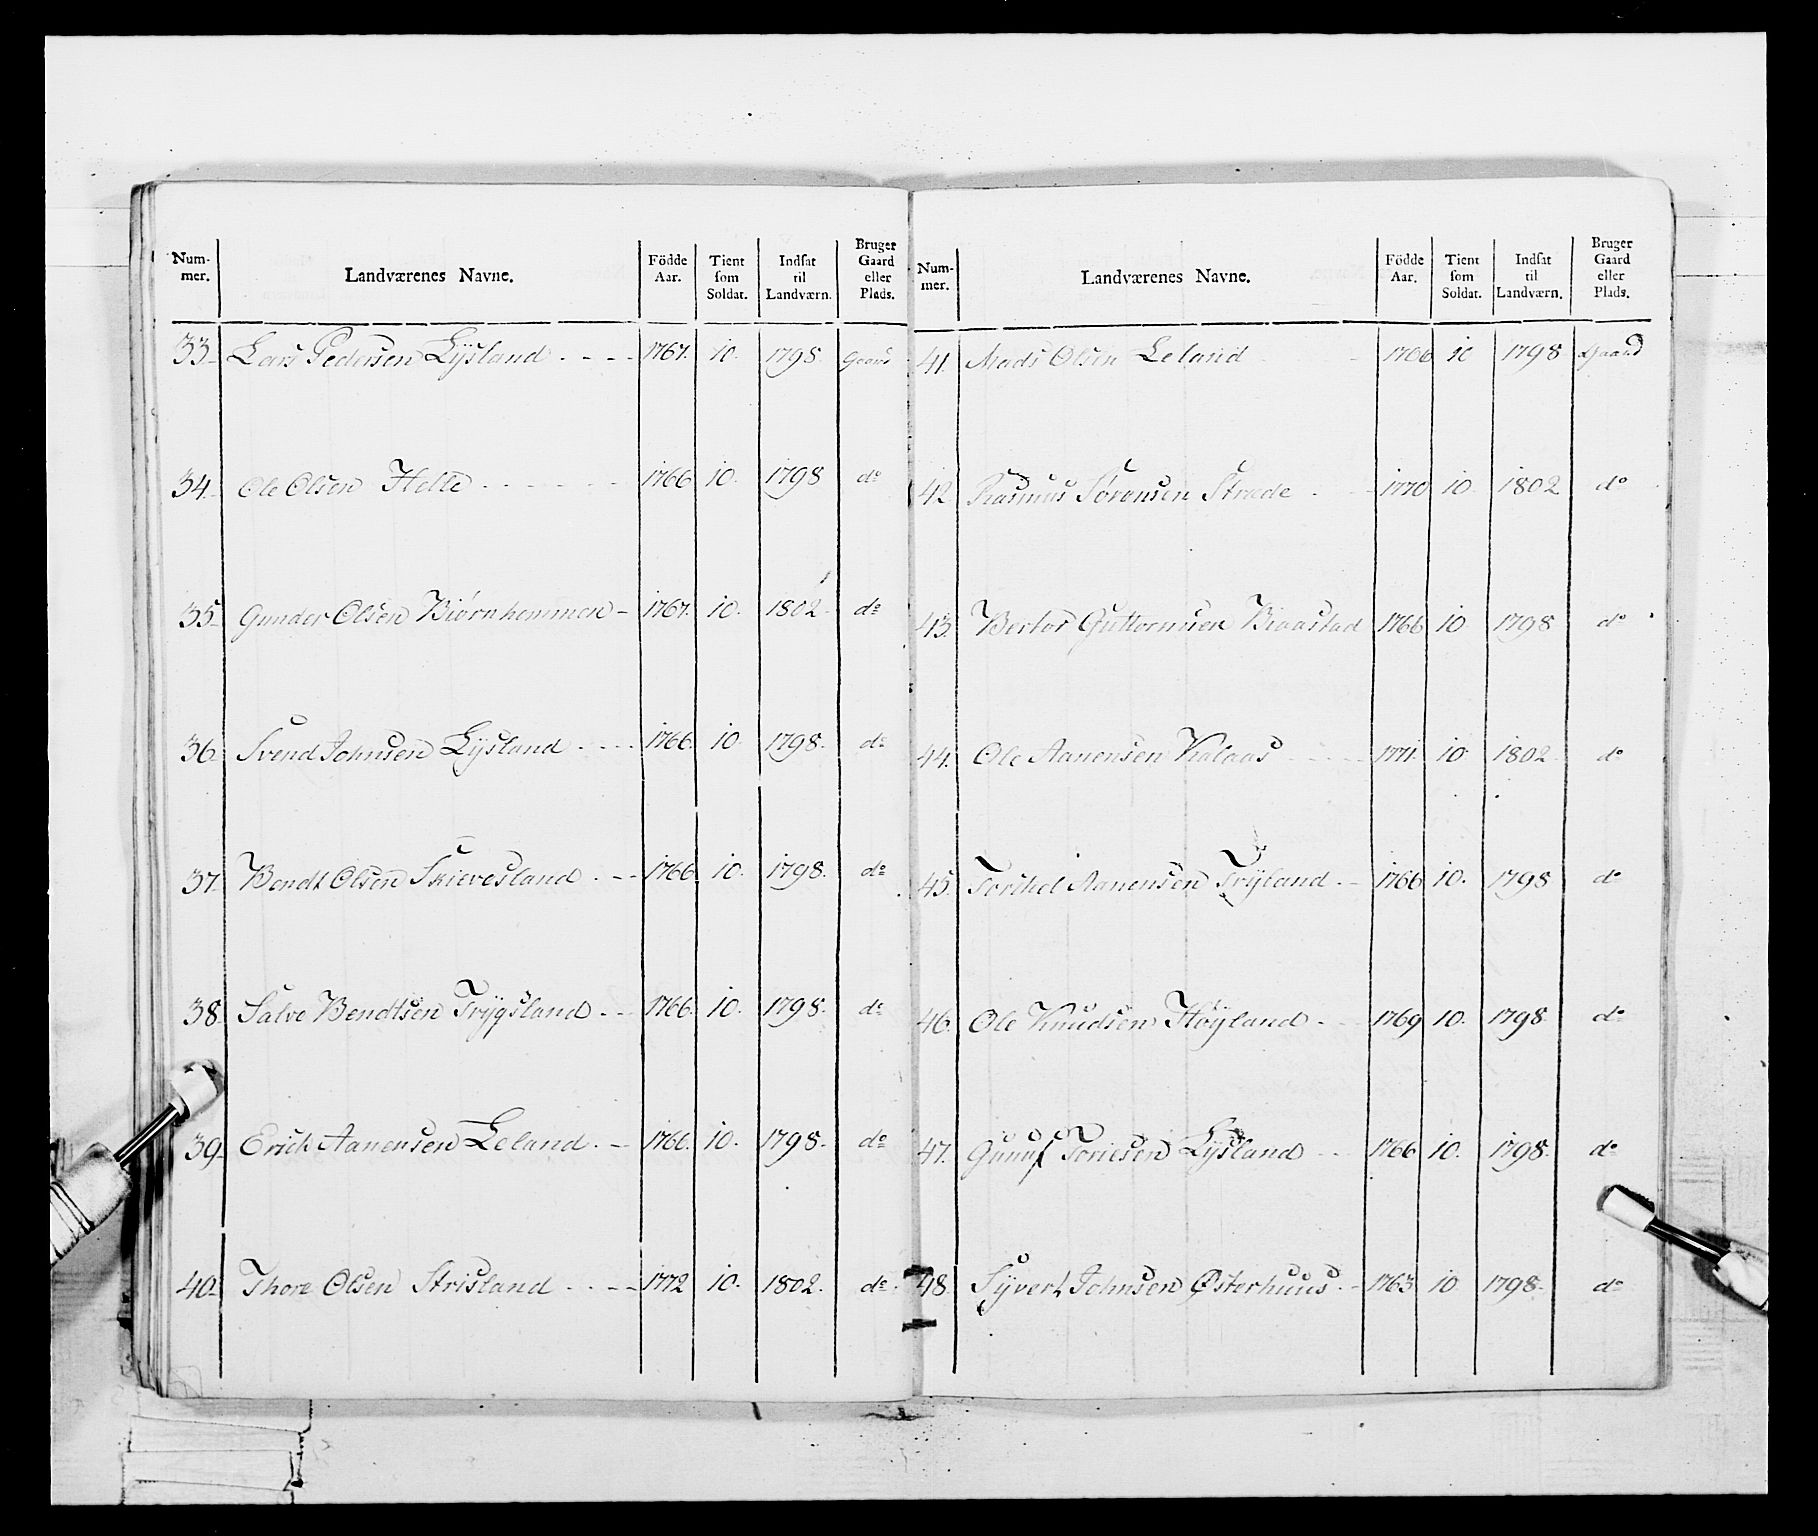 Num-mer. Landværenes Navne. Födde Aar. Tient som Soldat. Indsat til Landværn. Bruger Gaard eller Plads.
33. Lars Pedersen Lÿsland 1767. 10. 1798 Gaard
34. Ole Olsen Helle 1766 10. 1798 do
35. Gunder Olsen Biørnhemmen 1767. 10. 1802 do
36. Svend Johnsen Lÿsland 1766. 10 1798. do
37. Bendt Olsen Skievesland 1766 10. 1798. do
38. Salve Bendtsen Trÿgsland 1766. 10. 1798. do
39. Erich Aanensen Leland 1766. 10. 1798. do
40. Thore Olsen Strisland 1772 10. 1802. do
Num-mer. Landværenes Navne. Födde Aar. Tient som Soldat. Indsat til Landværn. Bruger Gaard eller Plads.
41. Mads Olsen Leland 1766 10 1798 Gaard
42 Rasmus Sørensen Stræde 1770 10. 1802 do
43. Guttormsen 1766 10 1798 do
44. Ole Aanensen 1771. 10 1802 do
45. Torkel Aanensen Trÿland 1766 10. 1798 do
46. Ole Knudsen Høÿland 1769 10. 1798 do
47. Lÿsland 1766 10. 1798. do
48. Sÿvert Johnsen Østerhuus 1763 10 1798. do